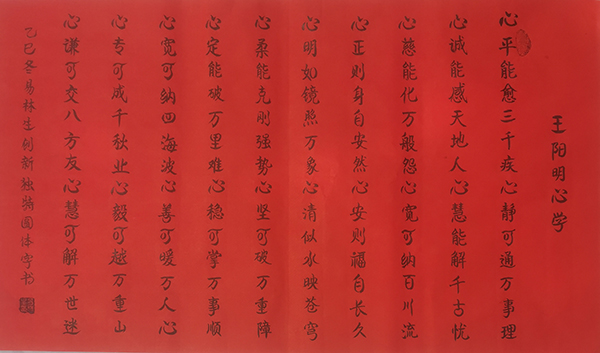 王阳明心学
心平能愈三千疾心静可通万事理
心诚能感天地人心慧能解千古忧
心慈能化万般怨心宽可纳百川流
心正则身自安然心安则福自长久
心明如镜照万象心清似水映苍穹
心柔能克刚强势心坚可破万重障
心定能破万里难心稳可掌万事顺
心宽可纳四海波心善可暖万人心
心专可成千秋业心毅可越万重山
心谦可交八方友心慧可解万世迷
乙巳冬易林生创新独特圆体字书